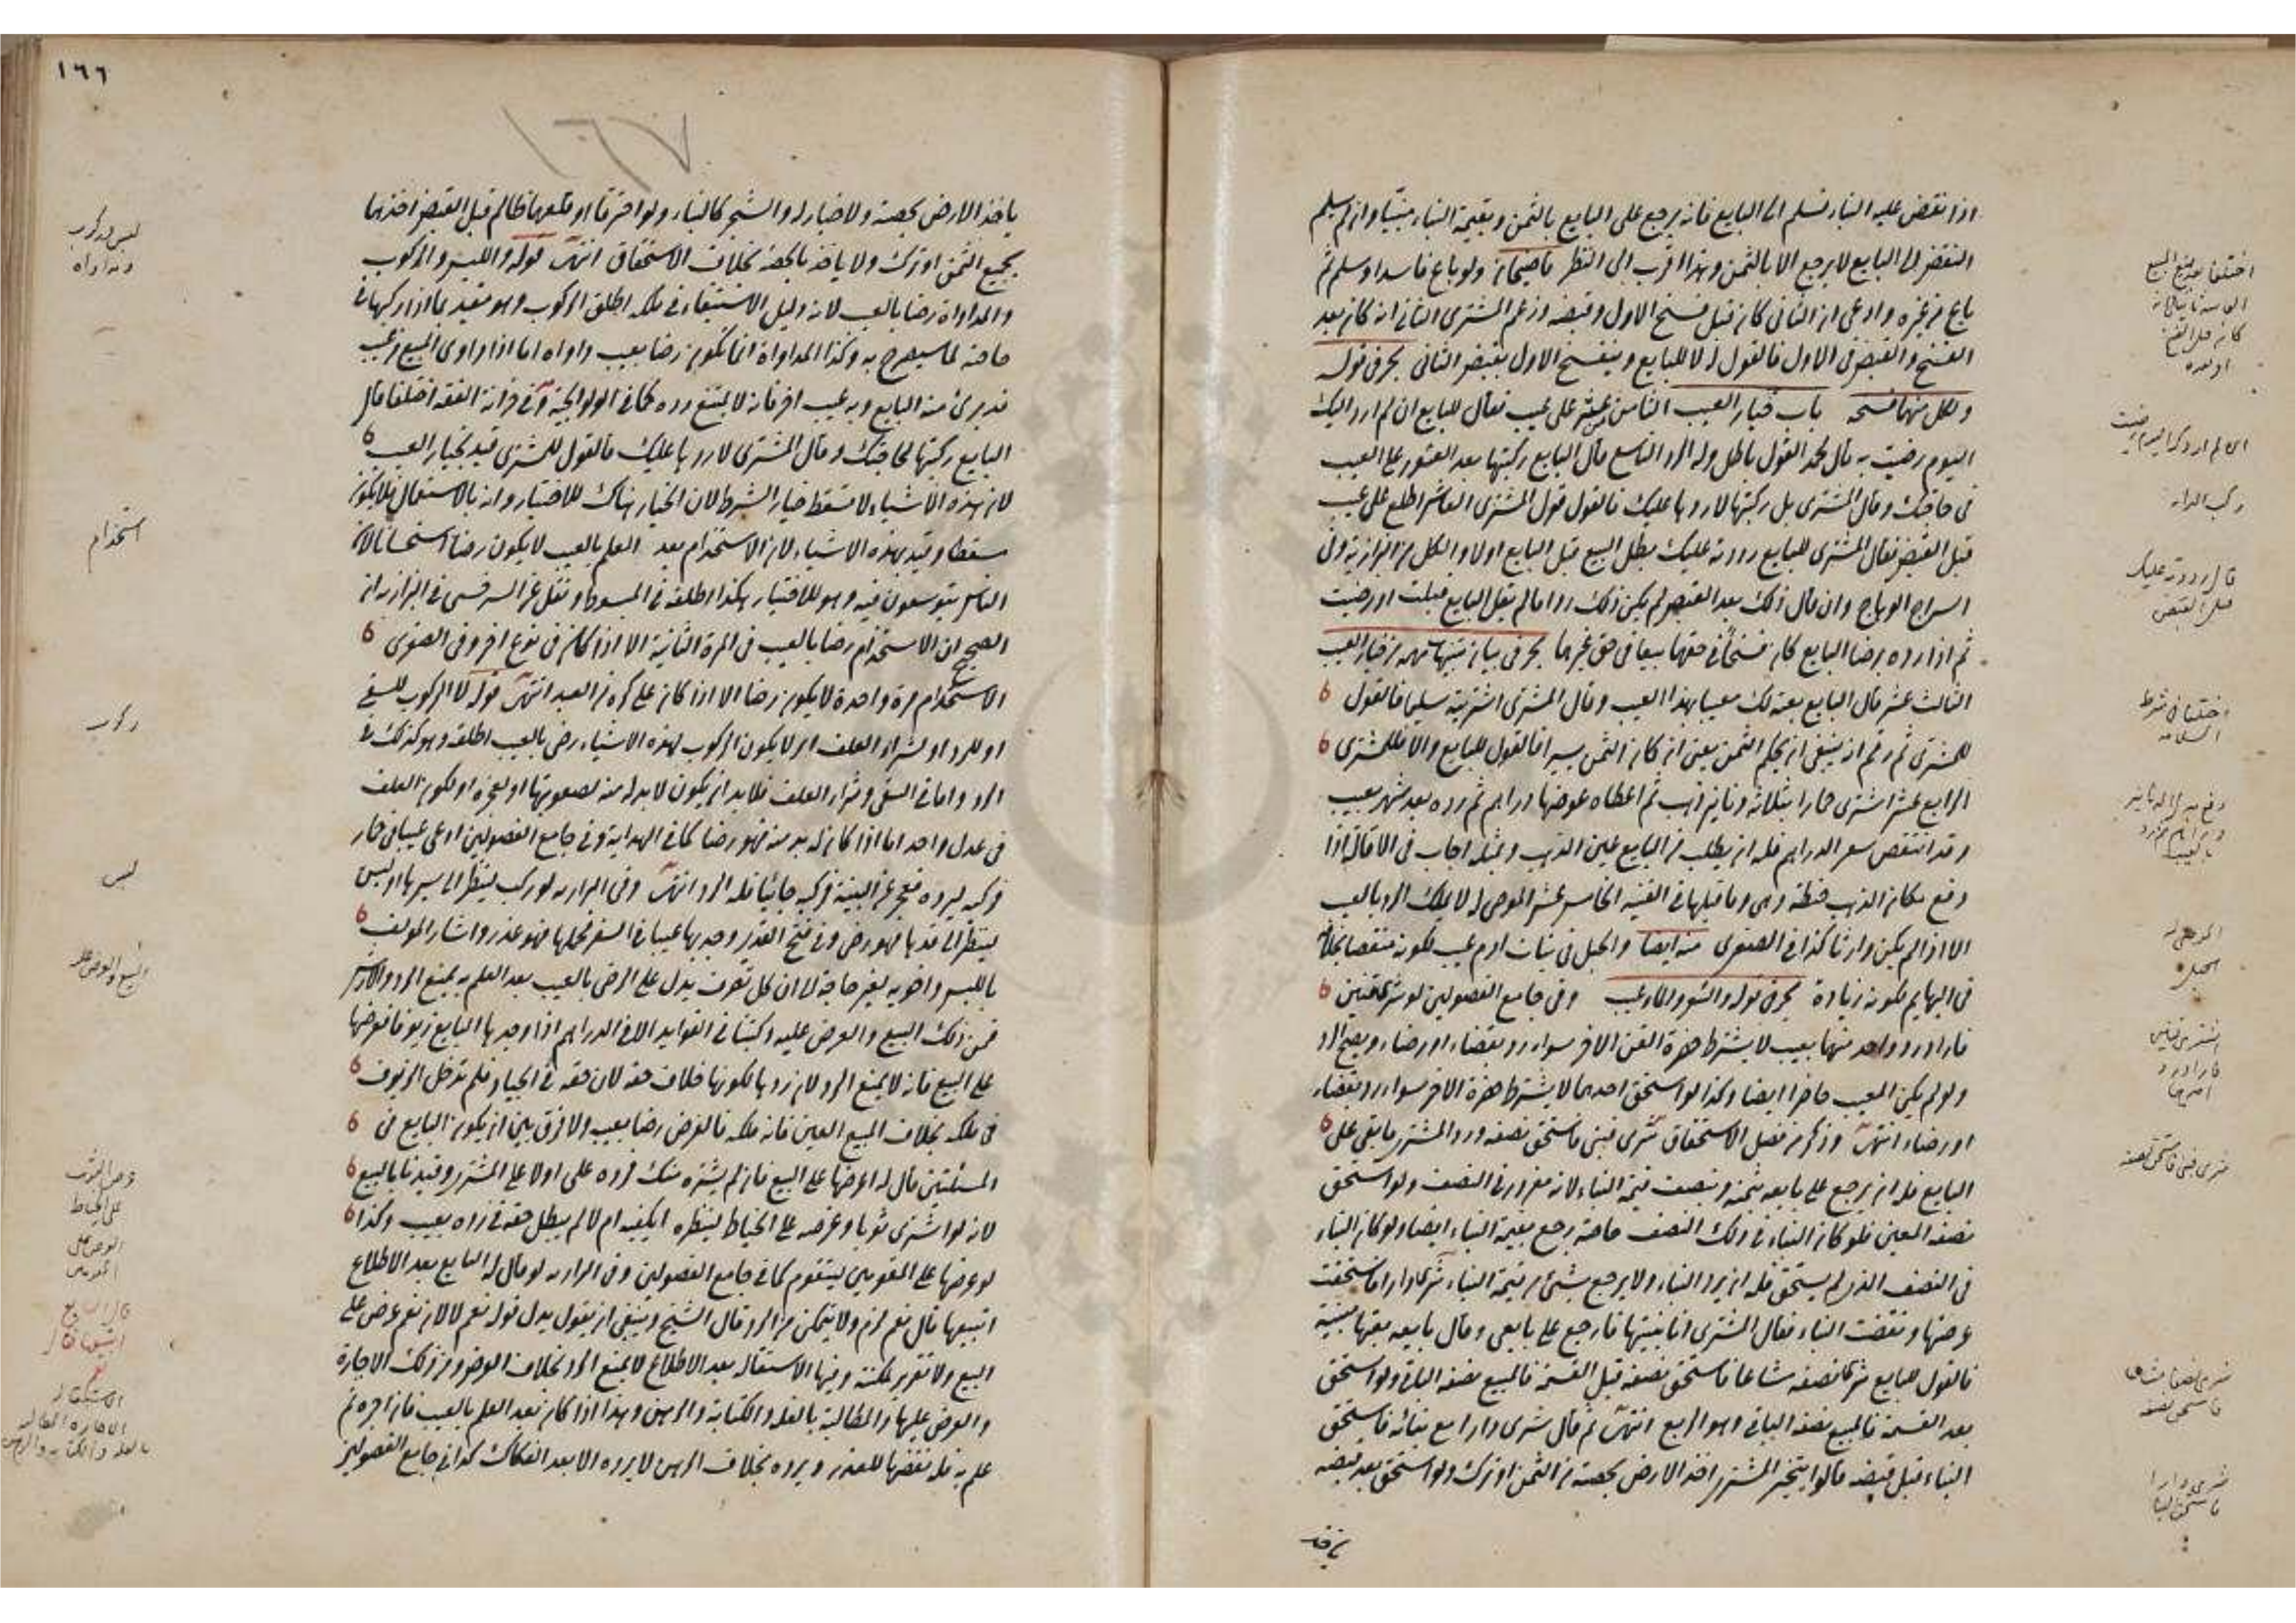 اذا نقض عليه البناء فسلم الى البايع فانه يرجع على البايع بالثمن وبقيمة البناء مبنيا وان لم يسلم
النقض الى البايع لا يرجع الا بالثمن وهذا اقرب الى النظر ولو باع فاسدا وسلم ثم
باع من غيره وادعى ان الثانى كان قبل فسخ الاول وقبضه وزعم المشترى الثانى انه كان بعد
الفسخ والقبض من الاول فالقول له لا للبايع وينفسخ الاول بقبض الثانى بحر فى قوله
ولكل منهما فسخه باب خيار العيب الثامن عشر على عيب فقال للبايع ان لم ارد اليك
اليوم رضيت به قال محمد القول باطل وله الرد التاسع قال البايع ركبتها بعد العثور على العيب
فى حاجتك وقال المشترى بل ركبتها لاردها عليك فالقول قول المشترى العاشر اطلع على عيب
قبل القبض فقال المشترى للبايع رددته عليك بطل البيع قبل البايع اولا والكل من البزازية وفى
السراج الوهاج وان قال ذلك بعد القبض لم يكن ذلك ردا ما لم يقل البايع قبلت او رضيت
ثم اذا رده برضا البايع كان فسخا فى حقهما بيعا فى حق غيرهما بحر فى من خيار العيب
الثالث عشر قال البايع بعته لك معيبا بهذا العيب وقال المشترى اشتريته سليما فالقول
للمشترى ثم رقم انه ينبغى ان يحكم الثمن يعنى ان كان الثمن يسيرا فالقول للبايع والا فللمشترى
الرابع عشر اشترى حمارا بثلاثة دنانير ذهب ثم اعطاه عوضها دراهم ثم رده بعد شهر بعيب
وقد انتقص سعر الدراهم فله ان يطلب من البايع عين الذهب وبمثله اجاب فى الاقالة اذا
دفع مكان الذهب حنطة وهى وما قبلها فى القنية الخامس عشر الموصى له لا يملك الرد بالعيب
الا اذا لم يكن وارثا كذا فى الصغرى منه ايضا والحبل فى بنات ادم عيب لكونه منقصا بخلافه
فى البهايم لكونه زيادة بحر فى قوله وفى جامع الفصولين لو شرى قنين
فاراد رد واحد منهما بعيب لا يشترط حضرة القن الاخر سواء رد بقضاء او رضاء ويصح الرد
ولو لم يكن المعيب حاضرا ايضا وكذا لو استحق احدهما لا يشترط حضرة الاخر سواء رد بقضاء
او رضاء انتهى وذكر من فصل الاستحقاق شرى فبنى فاستحق نصفه ورد المشترى ما بقى على
البايع فله ان يرجع على بايعه بثمنه وبنصف قيمة البناء لانه مغرور فى النصف ولو استحق
نصفه المعين فلو كان البناء فى ذلك النصف خاصة رجع بقيمة البناء ايضا ولو كان البناء
فى النصف الذى لم يستحق فله ان يرد البناء ولا يرجع بشئ من قيمة البناء شرى دارا فاستحقت
عرصتها ونقضت البناء فقال المشترى انا بنيتها فارجع على بايعى وقال بايعه بعتها مبنية
فالقول للبايع شرى نصفه مشاعا فاستحق نصفه قبل القسمة فالمبيع نصفه الباقى ولو استحق
بعد القسمة فالمبيع نصف الباقى وهو الربع انتهى ثم قال شرى دارا مع بنائه فاستحق
البناء قبل قبضه قالوا يتخير المشترى اخذ الارض بحصته من الثمن او ترك ولو استحق بعد قبضه
ياخذ
اختلفا بعد
او بعده
ركب الدابة
قال رددته عليك
قبل القبض
اختلفا فى شرط
السلامة
الموصى له
الحبل
اشترى قنين
فاراد رد
احدهما
شرى فبنى فاستحق نصفه
شرى نصفا مشاعا
فاستحق نصفه
شرى دارا
فاستحق البناء
١٦٦
١٦٧
ياخذ الارض بحصته ولا خيار له والشجر كالبناء ولو احترقا او قلعهما ظالم قبل القبض اخذهما
بجميع الثمن او ترك ولا ياخذ بالحصة بخلاف الاستحقاق انتهى قوله واللبس والركوب
والمداواة رضا بالعيب لانه دليل الاستبقاء فى ملكه اطلق الركوب وهو مقيد بما اذا ركبها فى
حاجته لما سيصرح به وكذا المداواة انما تكون رضا بعيب داواه اما اذا داوى المبيع من عيب
قد برئ منه البايع وبه عيب اخر فانه لا يمتنع رده كما فى الولوالجية وفى خزانة الفقه اختلفا قال
البايع ركبتها لحاجتك وقال المشترى لاردها عليك فالقول للمشترى قيد بخيار العيب
لان هذه الاشياء لا تسقط خيار الشرط لان الخيار هناك للاختبار وانه بالاستعمال فلا يكون
مسقطا وقيد بهذه الاشياء لان الاستخدام بعد العلم بالعيب لا يكون رضا استحسانا لان
الناس يتوسعون فيه وهو للاختبار هكذا اطلقه فى المبسوط ونقل عن السرخسى فى البزازية ان
الصحيح ان الاستخدام رضا بالعيب فى المرة الثانية الا اذا كان فى نوع اخر وفى الصغرى
الاستخدام مرة واحدة لا يكون رضا الا اذا كان على كره من العبد انتهى قوله لا الركوب للسقى
او للرد او لشراء العلف اى لا يكون الركوب لهذه الاشياء رضى بالعيب اطلقه وهو كذلك فى
الرد واما فى السقى وشراء العلف فلا بد ان يكون لا بد له منه لصعوبتها او لعجزه او لكون العلف
فى عدل واحد اما اذا كان له بد منه فهو رضا كما فى الهداية وفى جامع الفصولين ادعى عيبا فى حمار
فركبه ليرده فعجز عن البينة فركبه جائيا فله الرد انتهى وفى البزازية لو ركب لينظر الى سيرها او لبس
لينظر الى قدها فهو رضى وفى فتح القدير وجد بها عيبا فى السفر فحملها فهو عذر واشار المؤلف
باللبس واخويه لغير حاجة الى ان كل تصرف يدل على الرضى بالعيب بعد العلم به يمنع الرد والارش
فمن ذلك البيع والعرض عليه وكتبنا فى الفوايد الا فى الدراهم اذا وجدها البايع زيوفا فعرضها
على البيع فانه لا يمنع الرد لان ردها لكونها خلاف حقه لان حقه فى الجياد فلم تدخل الزيوف
فى ملكه بخلاف المبيع العين فانه ملكه فالعرض رضا بعيبه ولا فرق بين ان يكون البايع فى
المسئلتين قال له اعرضها على البيع فان لم يشتره منك فرده على اولا على المشترى وقيدنا بالبيع
لانه لو اشترى ثوبا وعرضه على الخياط لينظره ايكفيه ام لا لم يبطل حقه فى رده بعيب وكذا
لو عرضها على المقومين ليتقوم كما فى جامع الفصولين وفى البزازية لو قال له البايع بعد الاطلاع
اتبيعها قال نعم لزم ولا يتمكن من الرد قال الشيخ وينبغى ان يقول بدل قوله نعم لا لان نعم عرض على
البيع ولا تقرير لملكته وفيها الاستقالة بعد الاطلاع لا يمنع الرد بخلاف العرض ومن ذلك الاجارة
والعرض عليها والمطالبة بالغلة والكتابة والرهن وهذا اذا كان بعد العلم بالعيب فان اجره ثم
علم به فله نقضها للعذر ويرده بخلاف الرهن لا يرده الا بعد الفكاك كذا فى جامع الفصولين
لبس ركوب
ومداواه
استخدام
ركوب
لبس
عرض الثوب
على الخياط
العرض على
المقومين
قال البايع
اتبيعها قال
نعم
الاستقالة
الاجارة المطالبة
بالغلة والكتابة والرهن